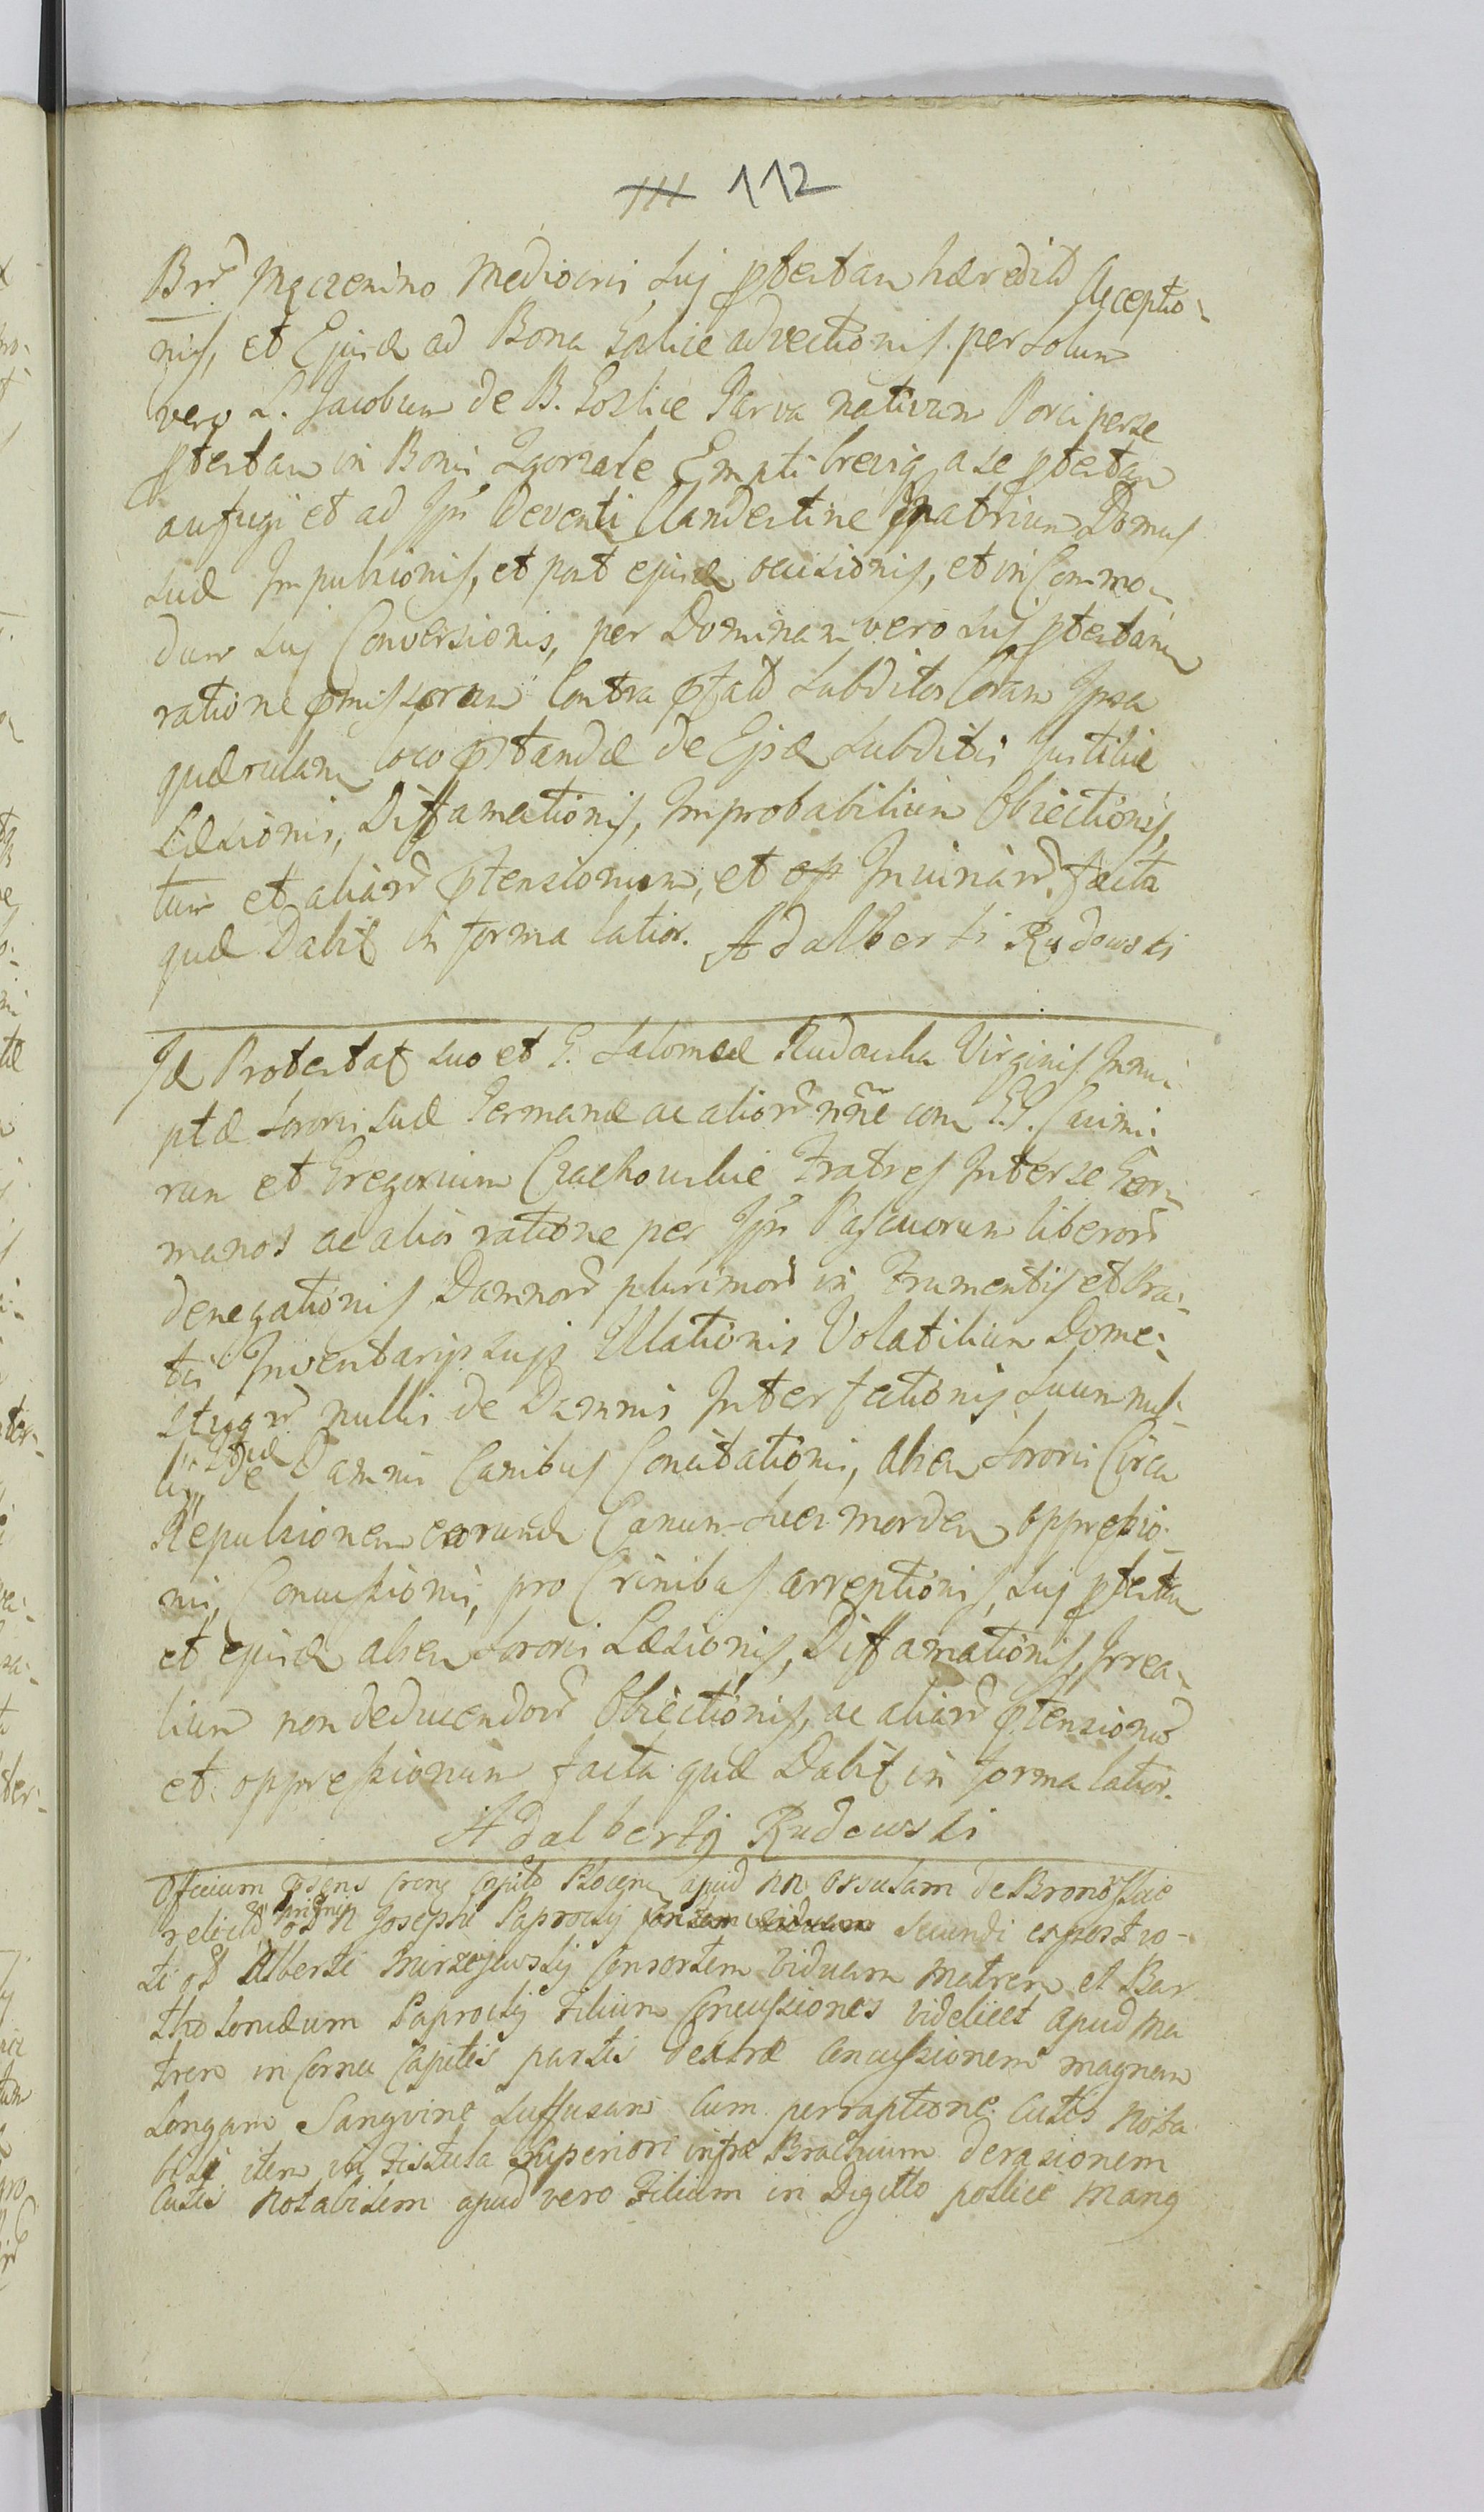 111 112
Bnꝝ Mączenino Mediocris sui ptestan hæredit Accepto-
nis, et Ejusd ad Bona Goslice advectionis per solum
vero L. Jacobum de B. Goslice Parva nativum Porci per se
ptestan in Bonis Zgorzale Empti brevig a se ptestan
aufugi et ad Jps deventi Clandestine in atrium Domus
suæ Impulsionis, et post ejusd occisionis, et in Commo-
dum sui Conversionis, per Dominam vero sui ptestan
ratione pmissorum Contra pfat subditos Coram Jpsa
quærulam loco pstandæ de Ejsd subditis Justitiæ
Læsionis, Diffamationis, Improbabilium Obiectionis,
tum et aliarꝝ ptensionum, et op Iniuriarꝝ facta
quæ Dabit in forma latior. Adalberti Rudowski
Jd Protestat suo et G. Salomeæ Rudowska Virginis Innu-
ptæ Sororis suæ Germanæ ac aliorꝝ nne con G.G. Casimi-
rum et Gregorium Czachowskie Fratres Inter se Ger-
manos ac alios ratione per Jps Pascuorum liberorꝝ
denegationis Damnorꝝ plurimorꝝ in Frumentis et Pra-
tis Inventarijs suis Illationis Volatilium Dome-
sticorꝝ nullis de Damnis Interfectionis Suum nul-
lis Itidæ de Damnis Canibus Concitationis, alsen Sororis Circa
Repulsionem eorund Canum Sues morden oppressio-
nis, Concussionis, pro Crinibus arreptionis, sui ptestan
et ejusd alsen Sororis Læsionis, Diffamationis, Irrea-
lium non deducendorꝝ Obiectionis, ac aliarꝝ ptensionum
et oppressionum facta quæ Dabit in forma latior.
Adalbertij Rudowski
Officium psens Crens Capit Plocen apud nn Orsulam de Bromoskie
relict primi os N Josephi Paprocky Secundi expost vo-
ti os Alberti Mirzejewskij Consortem viduam Matrem et Bar-
tholomæum Paprocky Filium Concussiones videlicet apud Ma
trem in Cornu Capitis partis dextræ Concussionem magnam
Longam Sangvine Suffusam cum perraptione Cutis Nota
bili item in Fistula Superiori infra Brachium derasionem
Cutis Notabilem apud vero Filium in Digitto pollice Mang